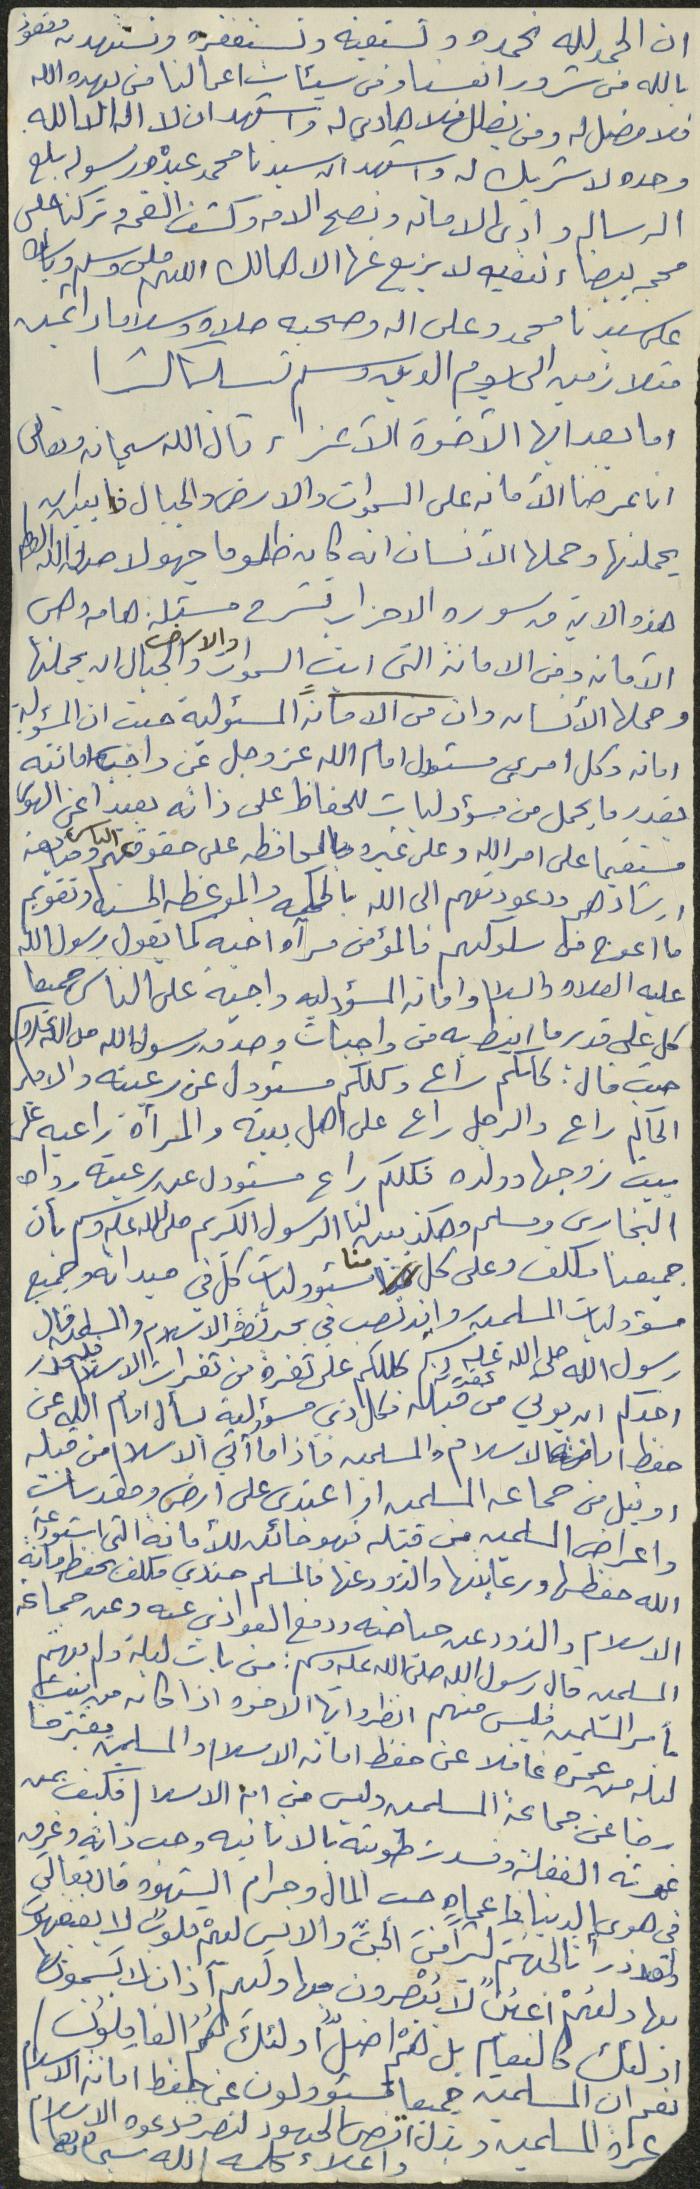 ان الحمد لله نحمده ونستعينه ونستغفره ونستهديه ونعوذ
بالله من شرور انفسنا ومن سيئات اعمالنا من يهده الله
فلا مضل له ومن يضلل فلا هادي له واشهد ان لا اله الا الله
وحده لا شريك له واشهد ان سيدنا محمد عبده ورسوله بلغ
الرساله وادى الامانه ونصح الامه وكشف الغمه وتركنا على
محجه بيضاء نقيه لا يزيغ عنها الا هالك اللهم صلي وسلم وبارك
على سيدنا محمد وعلى اله وصحبه صلاه وسلاما دائمين
متلازمين الى يوم الدين وسلم تسليما كثيرا
اما بعد ايها الآخوة الآعزاء قال الله سبحانه وتعالى
انا عرضنا الأمانه على السموات والارض والجبال فابين ان
يحملنها وحملها الأنسان انه كان ظلوما جهولا صدق الله العظيم
هذه الاية من سوره الاحزاب تشرح مسئلة هامه وهى
الآمانه وهى الامانة التى ابت السموات والارض والجبال ان يحملنها
وحملها الأنسان وان من الامانة المسئولية حيث ان المسؤلية
امانه وكل امرىء مسئول امام الله عز وجل عن واجب امانته
بقدر ما يحمل من مسؤوليات للحفاظ على ذاته بعيدا عن الهوى
مستقيما على امر الله وعلى غيره بالمحافظه على حقوق الناس
ارشادهم ودعوتهم الى الله بالحكمه والموعظه الحسنه وتقويم
ما اعوج من سلوكهم فالمؤمن مرآه اخيه كما يقول رسول الله
عليه الصلاه والسلام وامانه المسؤوليه واجبة على الناس جميعا
كل على قدر ما انيط به من واجبات وصدق رسول الله صلى الله عليه وسلم
حيث قال: كلكم راع وكلكم مسئوول عن رعيته والامام
الحاكم راع والرجل راع على اهل بيته والمرآة راعيه على
بيت زوجها وولده فكلكم راع مسئوول عن رعيته رواه
البخارى ومسلم وهكذا يبين لنا الرسول الكريم صلى الله عليه وسلم بأن
جميعنا مكلف وعلى كل منا مسئووليات كل في ميدانه وجميع
مسؤوليات المسلمين روافد تصب في بحر نصر الاسلام والمسلمين قال
رسول الله صلى الله عليه وسلم كلكم على ثغرة من ثغرات الاسلام فليحذر
احدكم ان يوتي من قبله فكل ذي مسؤولية يسأل امام الله عن
حفظ امانة الاسلام والمسلمين فأذا ما أتي الاسلام من قبله
او نيل من جماعه المسلمين او اعتدى على ارض ومقدسات
واعراض المسلمين من قبله فهو خائن للأمانة التى استودعه
الله حفظها ورعايتها والذود عنها فالمسلم جندي مكلف بحفظ امانة
الاسلام والذود عن حياضه ودفع العوادي عنه وعن جماعة
المسلمين قال رسول الله صلى الله عليه وسلم: من بات ليلة ولم يهتم
بأمر المسلمين فليس منهم انظروا ايها الاخوه اذا كانه من
ليله من عمره غافلا عن حفظ امانه الاسلام والمسلمين يعتبر خا
رجا عن جماعة المسلمين وليس من امة الاسلام فكيف بمن
غمرته الغفلة وفسدت طويته بالانانيه وحب ذاته وغرق
في هوى الدنيا واعماه حب المال وحرام الشهوه قال تعالى
ولقد ذرأنا لجهنم كثيرا من الجن والانس لهم قلوب لا يفقهون
بها ولهم اعين لا يبصرون بها ولهم آذان لا يسمعون بها
اولئك كالنعام بل هم اضل اولئك هم الغافلون
نعم ان المسلمين جميعا مسئوولون عن حفظ امانه الاسلام
المسلمين وبذل اقصى الجهود لنصر دعوه الاسلام
واعلاء كلمه الله سبحانه